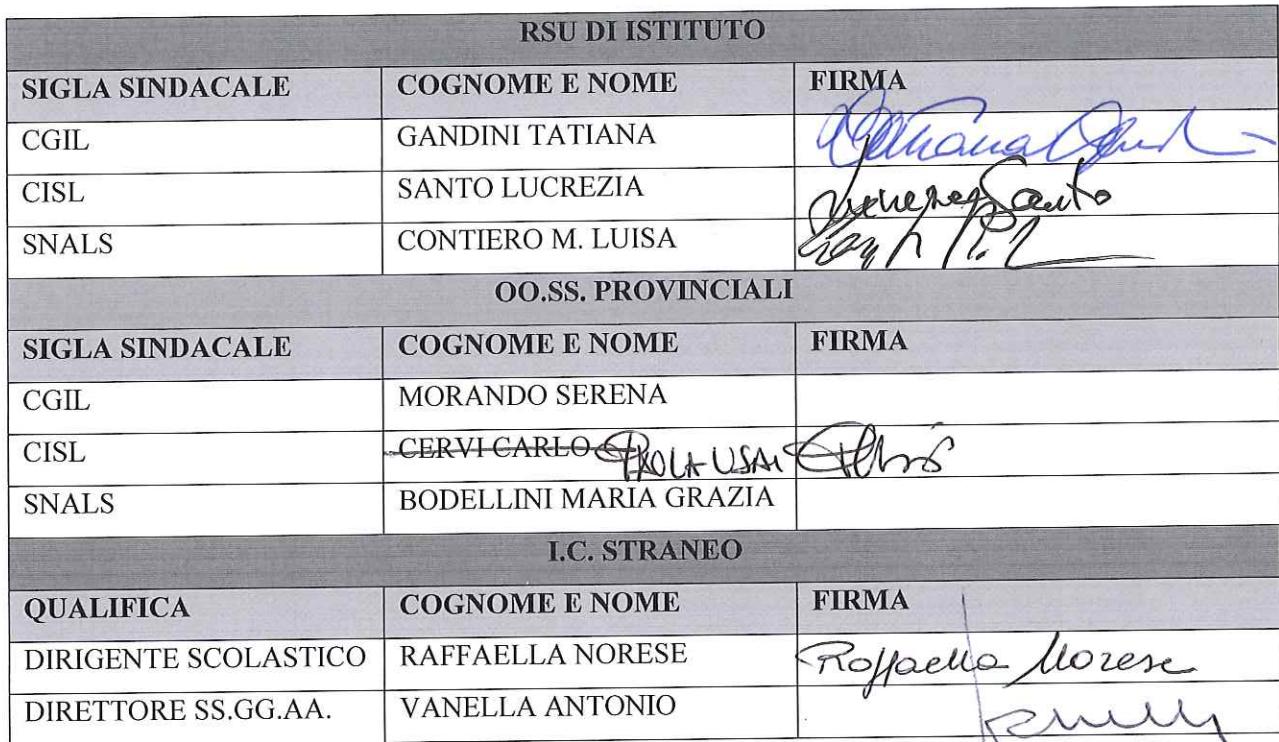 RSU DI ISTITUTO
SIGLA SINDACALE COGNOME E NOME FIRMA
CGIL GANDINI TATIANA
CISL SANTO LUCREZIA Lucrezia Santo
SNALS CONTIERO M. LUISA
OO.SS. PROVINCIALI
SIGLA SINDACALE COGNOME E NOME FIRMA
CGIL MORANDO SERENA
CISL CERVI CARLO PAOLA USAI
SNALS BODELLINI MARIA GRAZIA
I.C. STRANEO
QUALIFICA COGNOME E NOME FIRMA
DIRIGENTE SCOLASTICO RAFFAELLA NORESE Raffaella Norese
DIRETTORE SS.GG.AA. VANELLA ANTONIO